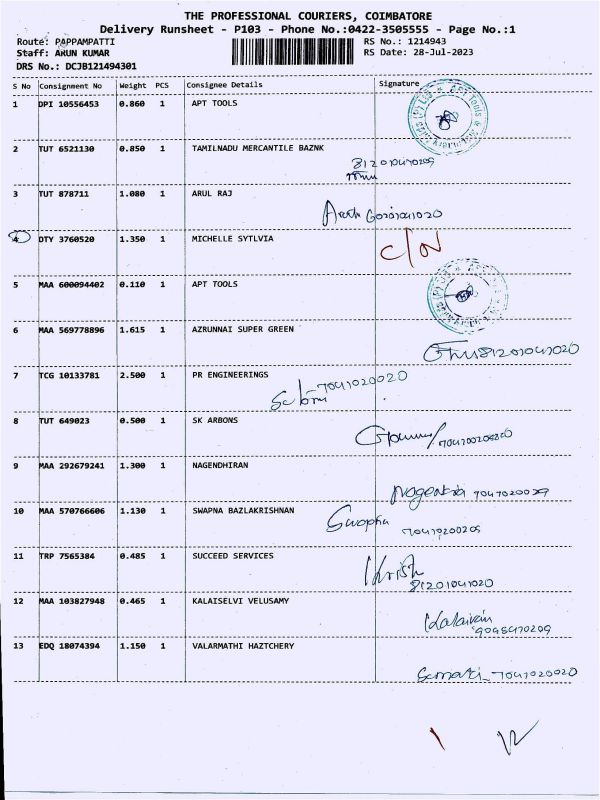 THE PROFESSIONAL COURIERS, COIMBATORE
Delivery Runsheet - P103 - Phone No.:0422-3505555 - Page No.:1
Route: PAPPAMPATTI
RS No.: 1214943
Staff: ARUN KUMAR
RS Date: 28-Jul-2023
DRS No.: DCJB121494301
S No Consignment No Weight PCS Consignee Details Signature
1 DPI 10556453 0.860 1 APT TOOLS
2 TUT 6521130 0.850 1 TAMILNADU MERCANTILE BAZNK
3 TUT 878711 1.080 1 ARUL RAJ
4 DTY 3760520 1.350 1 MICHELLE SYTLVIA C/N
5 MAA 600094402 0.110 1 APT TOOLS
6 MAA 569778896 1.615 1 AZRUNNAI SUPER GREEN
81201041020
7 TCG 10133781 2.500 1 PR ENGINEERINGS
7041020020
8 TUT 649023 0.500 1 SK ARBONS
9 MAA 292679241 1.300 1 NAGENDHIRAN
10 MAA 570766606 1.130 1 SWAPNA BAZLAKRISHNAN
Swapna
70410200205
11 TRP 7565384 0.485 1 SUCCEED SERVICES
81201041020
12 MAA 103827948 0.465 1 KALAISELVI VELUSAMY
13 EDQ 18074394 1.150 1 VALARMATHI HAZTCHERY
7041020020
1 12